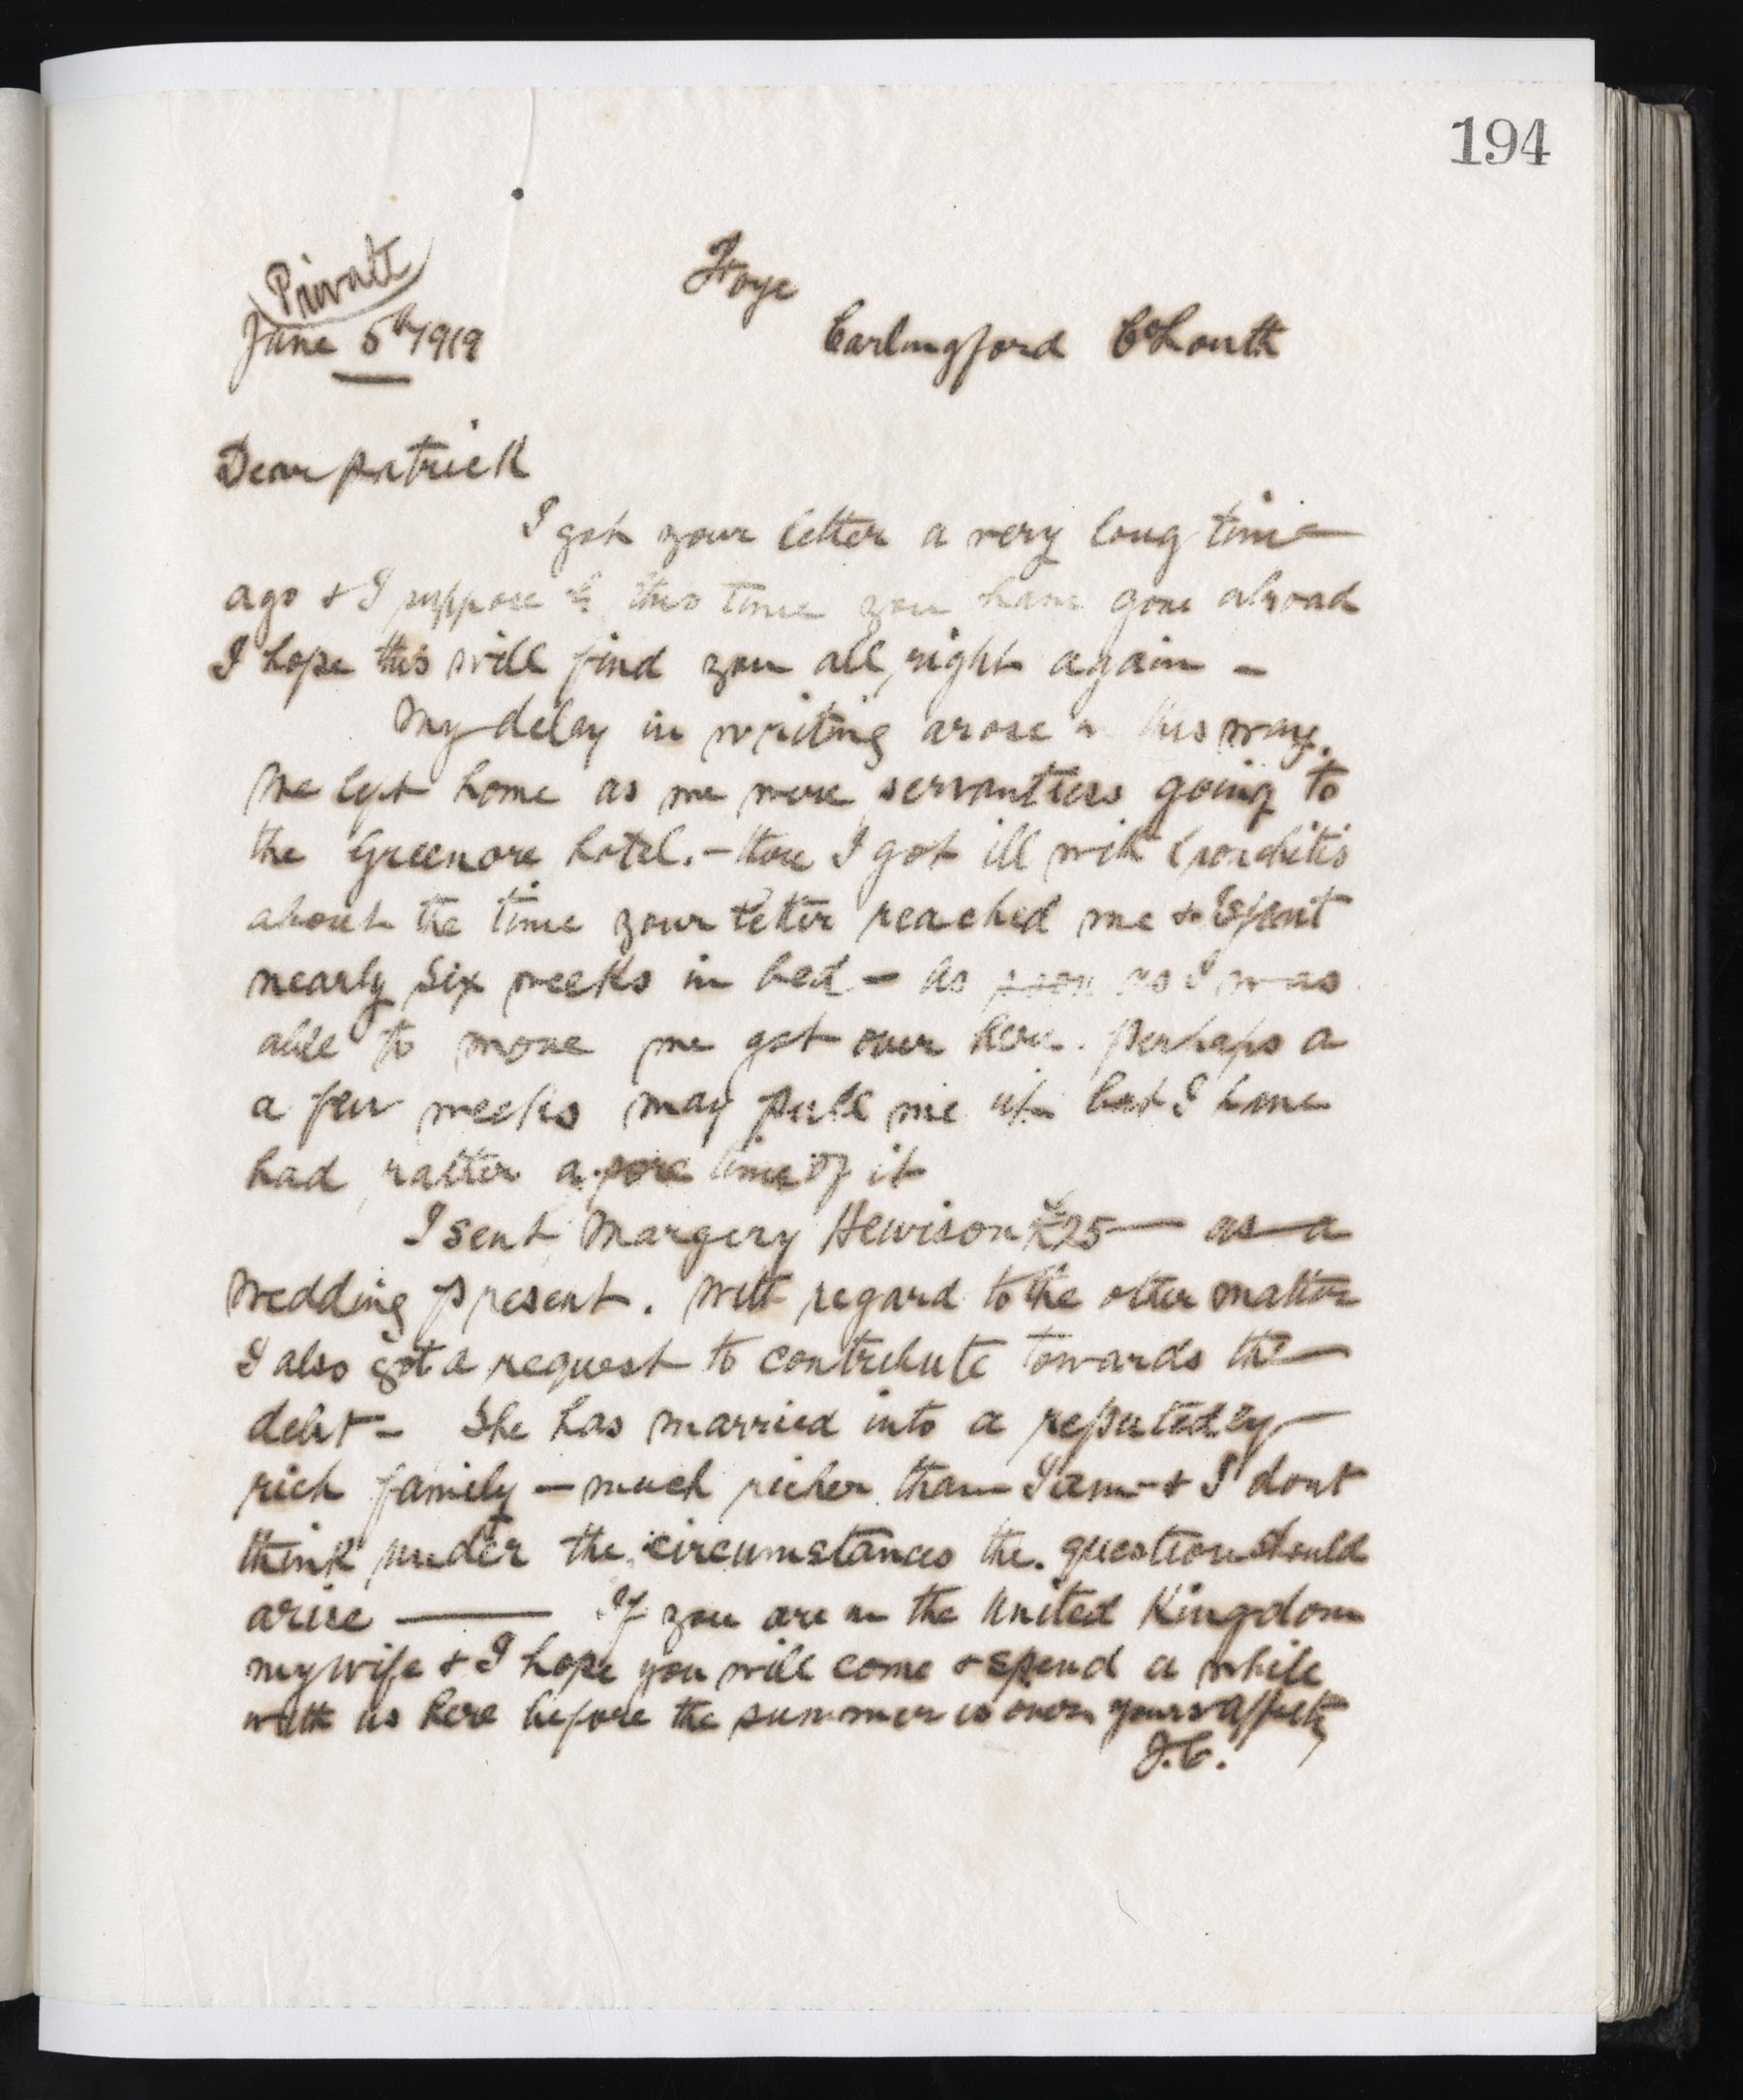 194
Private
Foye
June 5th 1919
Carlingford Co Louth
Dear Patrick
I got your letter a very long time
ago & I suppose by this time you have gone abroad
I hope this will find you all right again -
My delay in writing arose in this way.
We left home as we were servantless going to
the Greenore hotel. - there I got ill with bronchitis
about the time your letter reached me & I spent
nearly six weeks in bed - as soon as I was
able to move we got over here. Perhaps a
a few weeks may pull me up but I have
had rather a sore time of it
I sent Margery Hewison £25 — as a
Wedding present. With regard to the other matter
I also got a request to contribute towards the
debt - She has married into a reputedly
rich family - much richer than I am - & I dont
think under the circumstances the question should
arise —— If you are in the United Kingdom
my wife & I hope you will come & spend a while
with us here before the summer is over. yours affectly
J.C.